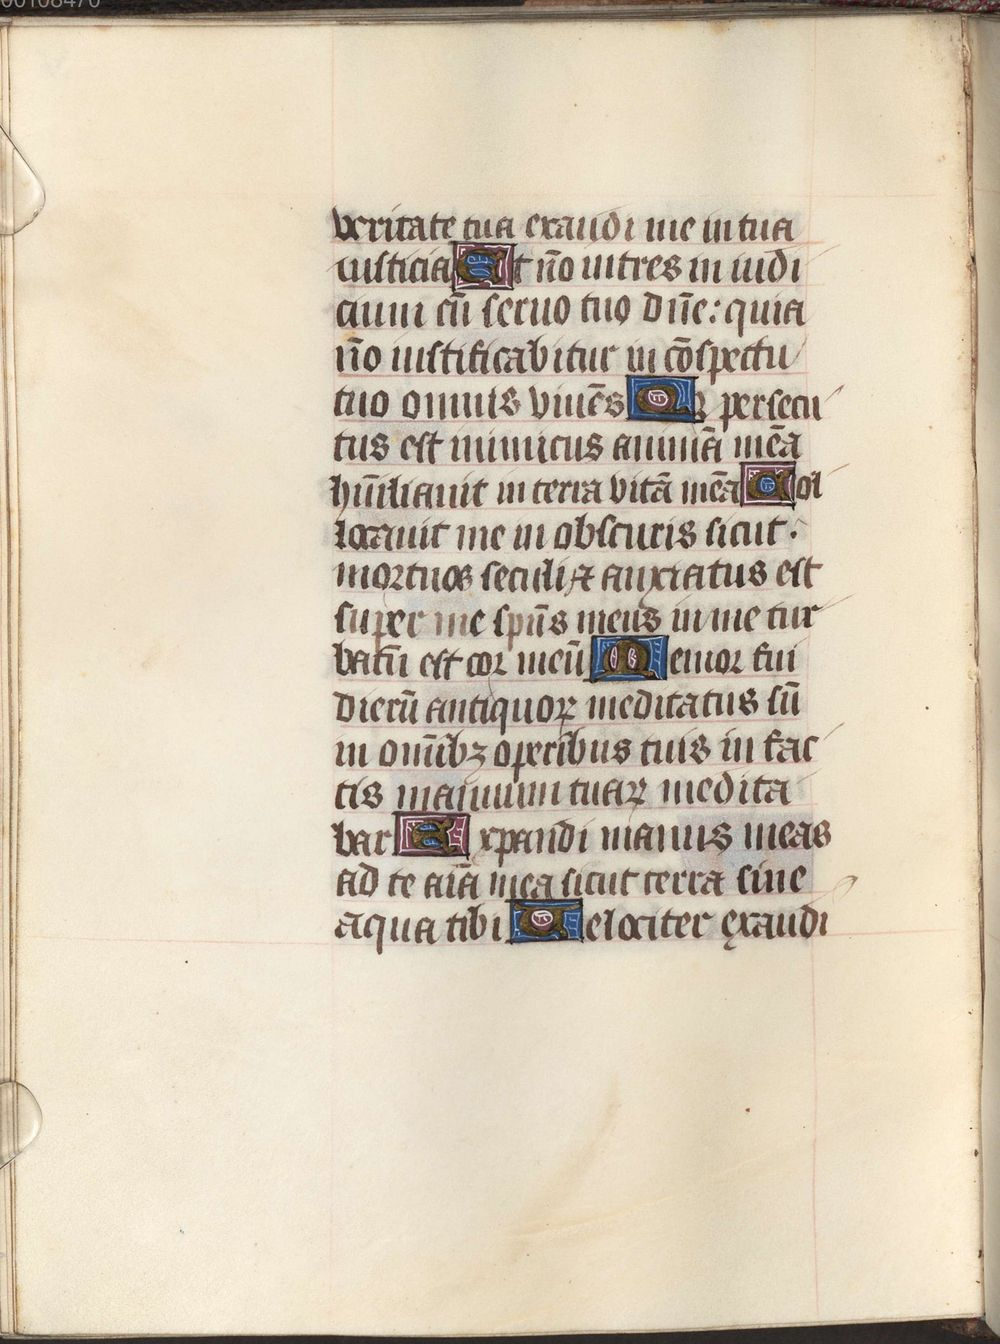 00108470
veritate tua exaudi me in tua
iusticia Et nō intres in iudi
cium cū seruo tuo dn̄e: quia
nō iustificabitur in cōspectu
tuo omnis viuēs Qꝛ persecu
tus est inimicus animā meā
hūiliauit in terra vitā meā Col
locauit me in obscuris sicut
mortuos seculi ⁊ anxiatus est
super me spūs meus in me tur
batū est cor meū Memor fui
dierū antiquoꝝ meditatus sū
in omībꝫ operibus tuis in fac
tis manuum tuaꝝ medita
bar Expandi manus meas
ad te aīa mea sicut terra sine
aqua tibi Velociter exaudi